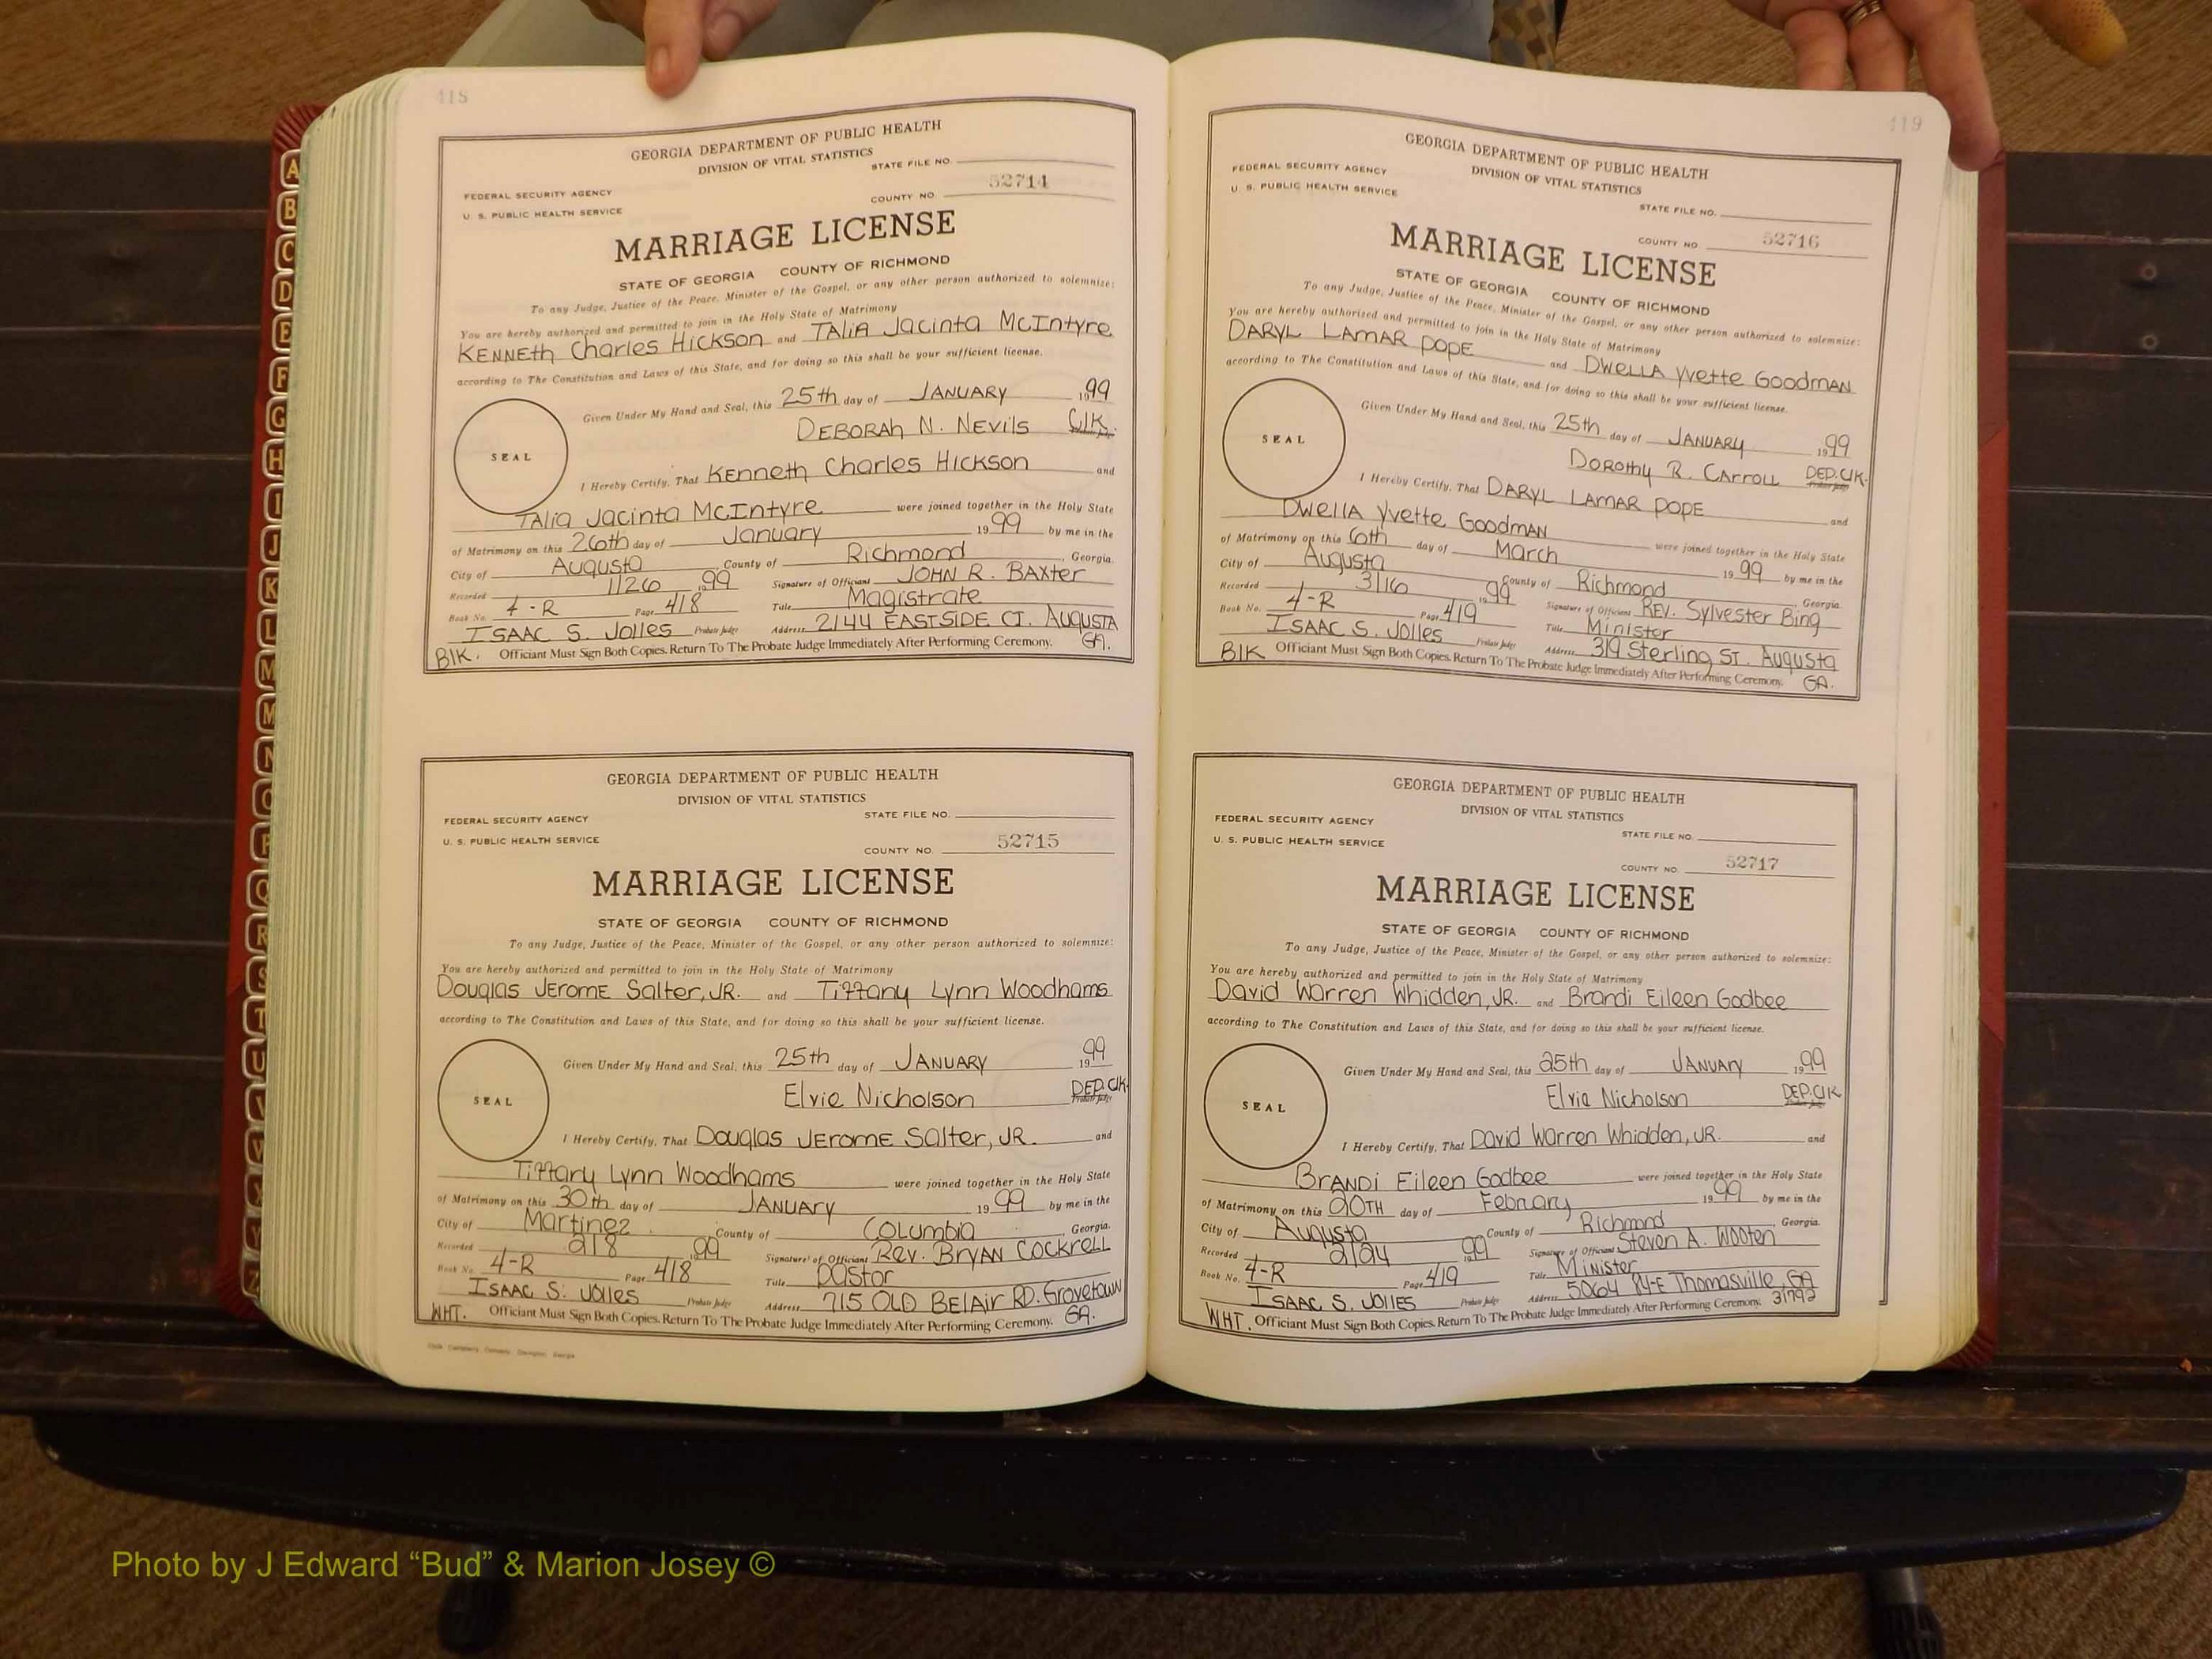 418
GEORGIA DEPARTMENT OF PUBLIC HEALTH
DIVISION OF VITAL STATISTICS
STATE FILE NO.
FEDERAL SECURITY AGENCY
U. S. PUBLIC HEALTH SERVICE
COUNTY NO. 52714
MARRIAGE LICENSE
STATE OF GEORGIA COUNTY OF RICHMOND
To any Judge, Justice of the Peace, Minister of the Gospel, or any other person authorized to solemnize:
You are hereby authorized and permitted to join in the Holy State of Matrimony
KENNETH Charles Hickson and TALIA Jacinta McIntyre
according to The Constitution and Laws of this State, and for doing so this shall be your sufficient license.
Given Under My Hand and Seal, this 25th day of JANUARY 1999
DEBORAH N. NEVILS Clk.
SEAL
I Hereby Certify, That Kenneth Charles Hickson and
TALIA Jacinta McIntyre were joined together in the Holy State
of Matrimony on this 26th day of January 1999 by me in the
City of Augusta County of Richmond, Georgia.
Recorded 1/26 1999 Signature of Officiant JOHN R. BAXTER
Book No. 4-R Page 418 Title Magistrate
ISAAC S. JOLLES Probate Judge Address 2144 EASTSIDE CT. AUGUSTA
BlK. Officiant Must Sign Both Copies. Return To The Probate Judge Immediately After Performing Ceremony. GA.
GEORGIA DEPARTMENT OF PUBLIC HEALTH
DIVISION OF VITAL STATISTICS
STATE FILE NO.
FEDERAL SECURITY AGENCY
U. S. PUBLIC HEALTH SERVICE
COUNTY NO. 52715
MARRIAGE LICENSE
STATE OF GEORGIA COUNTY OF RICHMOND
To any Judge, Justice of the Peace, Minister of the Gospel, or any other person authorized to solemnize:
You are hereby authorized and permitted to join in the Holy State of Matrimony
Douglas JEROME Salter, JR. and Tiffany Lynn Woodhams
according to The Constitution and Laws of this State, and for doing so this shall be your sufficient license.
Given Under My Hand and Seal, this 25th day of JANUARY 1999
Elvie Nicholson DEP. Clk.
SEAL
I Hereby Certify, That Douglas JEROME Salter, JR. and
Tiffany Lynn Woodhams were joined together in the Holy State
of Matrimony on this 30th day of JANUARY 1999 by me in the
City of Martinez County of COLUMBIA, Georgia.
Recorded 2/8 1999 Signature of Officiant Rev. BRYAN COCKRELL
Book No. 4-R Page 418 Title Pastor
ISAAC S. JOLLES Probate Judge Address 715 OLD BELAIR RD. Grovetown
WHT. Officiant Must Sign Both Copies. Return To The Probate Judge Immediately After Performing Ceremony. GA.
419
GEORGIA DEPARTMENT OF PUBLIC HEALTH
DIVISION OF VITAL STATISTICS
FEDERAL SECURITY AGENCY
U. S. PUBLIC HEALTH SERVICE
STATE FILE NO.
COUNTY NO. 52716
MARRIAGE LICENSE
STATE OF GEORGIA COUNTY OF RICHMOND
To any Judge, Justice of the Peace, Minister of the Gospel, or any other person authorized to solemnize:
You are hereby authorized and permitted to join in the Holy State of Matrimony
DARYL LAMAR POPE and DWELLA Yvette GOODMAN
according to The Constitution and Laws of this State, and for doing so this shall be your sufficient license.
Given Under My Hand and Seal, this 25th day of JANUARY 1999
Dorothy R. CARROLL DEP. Clk.
SEAL
I Hereby Certify, That DARYL LAMAR POPE and
DWELLA Yvette GOODMAN were joined together in the Holy State
of Matrimony on this 6th day of March 1999 by me in the
City of Augusta County of Richmond Georgia.
Recorded 3/16 1999 Signature of Officiant REV. Sylvester Bing
Book No. 4-R Page 419 Title Minister
ISAAC S. JOLLES Probate Judge Address 319 Sterling ST. Augusta
BlK Officiant Must Sign Both Copies. Return To The Probate Judge Immediately After Performing Ceremony. GA.
GEORGIA DEPARTMENT OF PUBLIC HEALTH
DIVISION OF VITAL STATISTICS
FEDERAL SECURITY AGENCY
STATE FILE NO.
U. S. PUBLIC HEALTH SERVICE
COUNTY NO. 52717
MARRIAGE LICENSE
STATE OF GEORGIA COUNTY OF RICHMOND
To any Judge, Justice of the Peace, Minister of the Gospel, or any other person authorized to solemnize:
You are hereby authorized and permitted to join in the Holy State of Matrimony
David Warren Whidden, JR. and Brandi Eileen Godbee
according to The Constitution and Laws of this State, and for doing so this shall be your sufficient license.
Given Under My Hand and Seal, this 25th day of JANUARY 1999
Elvie Nicholson DEP. Clk
SEAL
I Hereby Certify, That David Warren Whidden, JR. and
BRANDI Eileen Godbee were joined together in the Holy State
of Matrimony on this 20TH day of February 1999 by me in the
City of Augusta County of Richmond, Georgia.
Recorded 2/24 1999 Signature of Officiant Steven A. Wooten
Book No. 4-R Page 419 Title Minister
ISAAC S. JOLLES Probate Judge Address 5064 84-E Thomasville, GA
WHT. Officiant Must Sign Both Copies. Return To The Probate Judge Immediately After Performing Ceremony. 31792
A
B
C
D
E
F
G
H
I
J
K
L
M
M
N
O
P
Q
R
S
T
U
V
W
X
Y
Z
Photo by J Edward “Bud” & Marion Josey ©